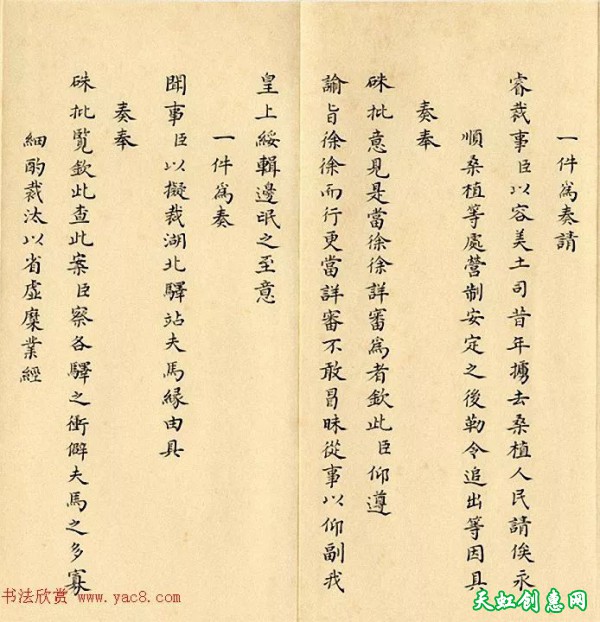 一件為奏請
睿裁事臣以容美土司昔年擄去桑植人民請俟永
順桑植等處營制安定之後勒令追出等因具
奏奉
硃批意見是當徐徐詳審為者欽此臣仰遵
諭旨徐徐而行更當詳審不敢冒昧從事以仰副我
皇上綏輯邊氓之至意
一件為奏
聞事臣以擬裁湖北驛站夫馬緣由具
奏奉
硃批覽欽此查此案臣察各驛之衝僻夫馬之多寡
細酌裁汰以省虛糜業經
书法欣赏 www.yac8.com
天虹创惠网